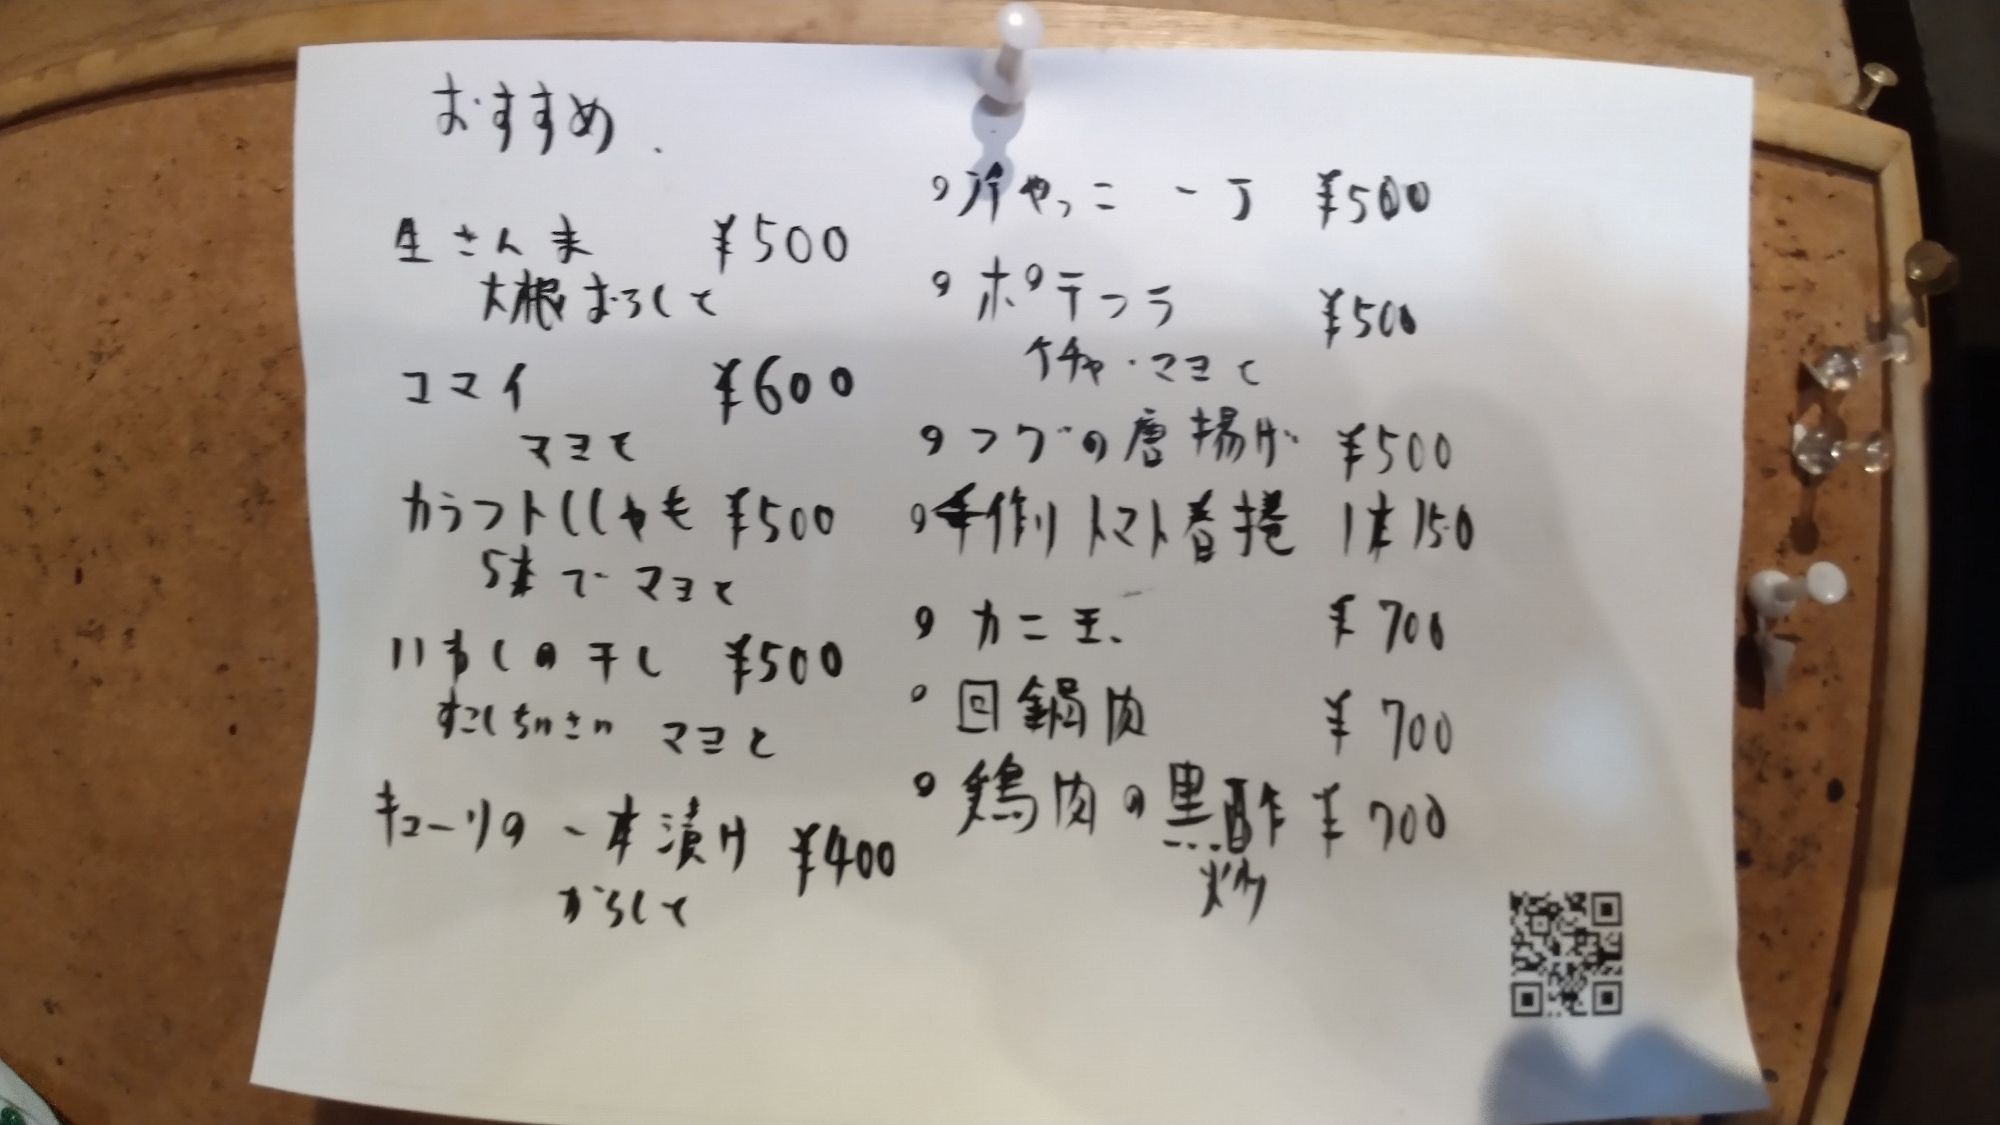 おすすめ.
生さんま ¥500
大根おろしと
コマイ ¥600
マヨと
カラフトししゃも ¥500
5本で マヨと
いわしの干し ¥500
すこしちいさい マヨと
キューリの 一本漬け ¥400
からしと
冷やっこ 一丁 ¥500
ポテフラ ¥500
ケチャ・マヨと
フグの唐揚げ ¥500
手作り トマト春捲 1本 150
カニ玉 ¥700
回鍋肉 ¥700
鶏肉の黒酢 ¥700
炒め